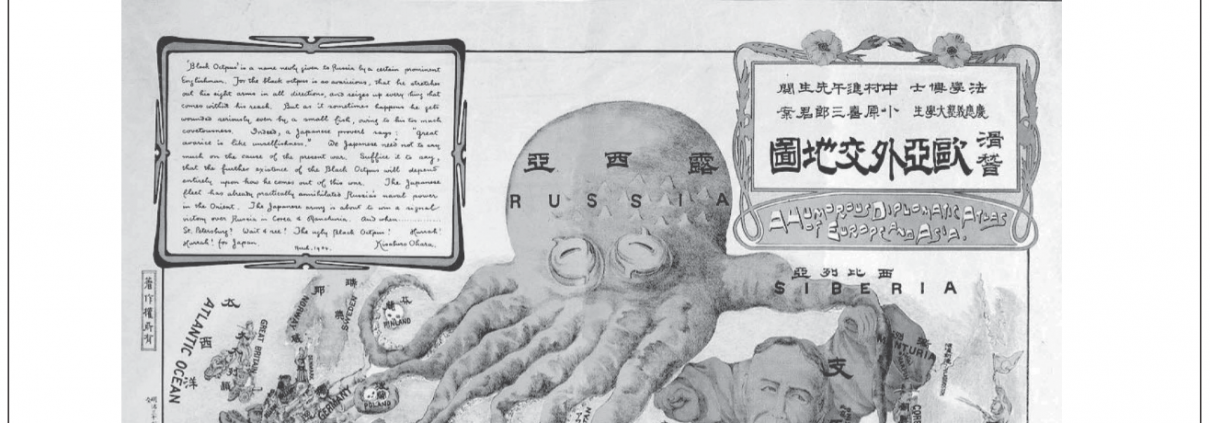 'Black Octopus' is a name newly given to Russia by a certain prominent
Englishman. For the black octopus is so avaricious, that he stretches
out his eight arms in all directions, and seizes up every thing that
comes within his reach. But as it sometimes happens he gets
wounded seriously even by a small fish, owing to his too much
covetousness. Indeed, a Japanese proverb says: "Great
avarice is like unselfishness." We Japanese need not to say
much on the cause of the present war. Suffice it to say,
that the further existence of the Black Octopus will depend
entirely upon how he comes out of this war. The Japanese
fleet has already practically annihilated Russia's naval power
in the Orient. The Japanese army is about to win a signal
victory over Russia in Corea & Manchuria. And when
St. Petersburg? Wait & see! The ugly Black Octopus! Hurrah!
Hurrah! for Japan.
Kisaburo Ohara.
法學博士 中村進午先生閱
慶應義塾大學生 小原喜三郎君案
滑稽
歐亞外交地圖
A HUMOROUS DIPLOMATIC ATLAS
OF EUROPE AND ASIA.
露西亞
RUSSIA
西比利亞
SIBERIA
著作權所有
大西洋
ATLANTIC OCEAN
GREAT BRITAIN
NORWAY
SWEDEN
FINLAND
DENMARK
GERMANY
POLAND
支